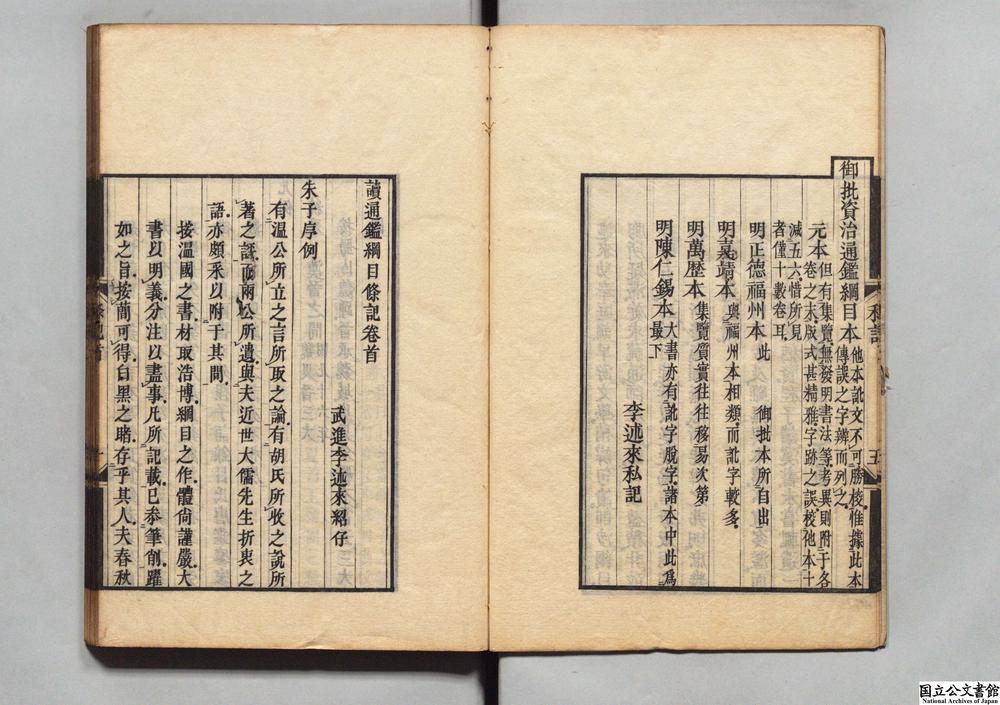 御批資治通鑑綱目本他本訛文不可勝校惟據此本
傳誤之字辨而列之
元本但有集覽無發明書法等考異則附于各
卷之末版式甚精雅字跡之誤校他本十
減五六惜所見
者僅十數卷耳
明正德福州本此 御批本所自出
明嘉靖本與福州本相類而訛字較多
明萬歷本集覽質實往往移易次第
明陳仁錫本大書亦有訛字脫字諸本中此爲
最下
李述來私記
私記
五
讀通鑑綱目條記卷首
武進李述來紹仔
朱子序例
有溫公所立之言所取之論有胡氏所收之說所
著之評而兩公所遺與夫近世大儒先生折衷之
語亦頗采以附于其間
按溫國之書材取浩博綱目之作體尚謹嚴大
書以明義分注以盡事凡所記載已叅筆削躍
如之旨按蕳可得白黑之睹存乎其人夫春秋
條記首
一
国立公文書館
National Archives of Japan